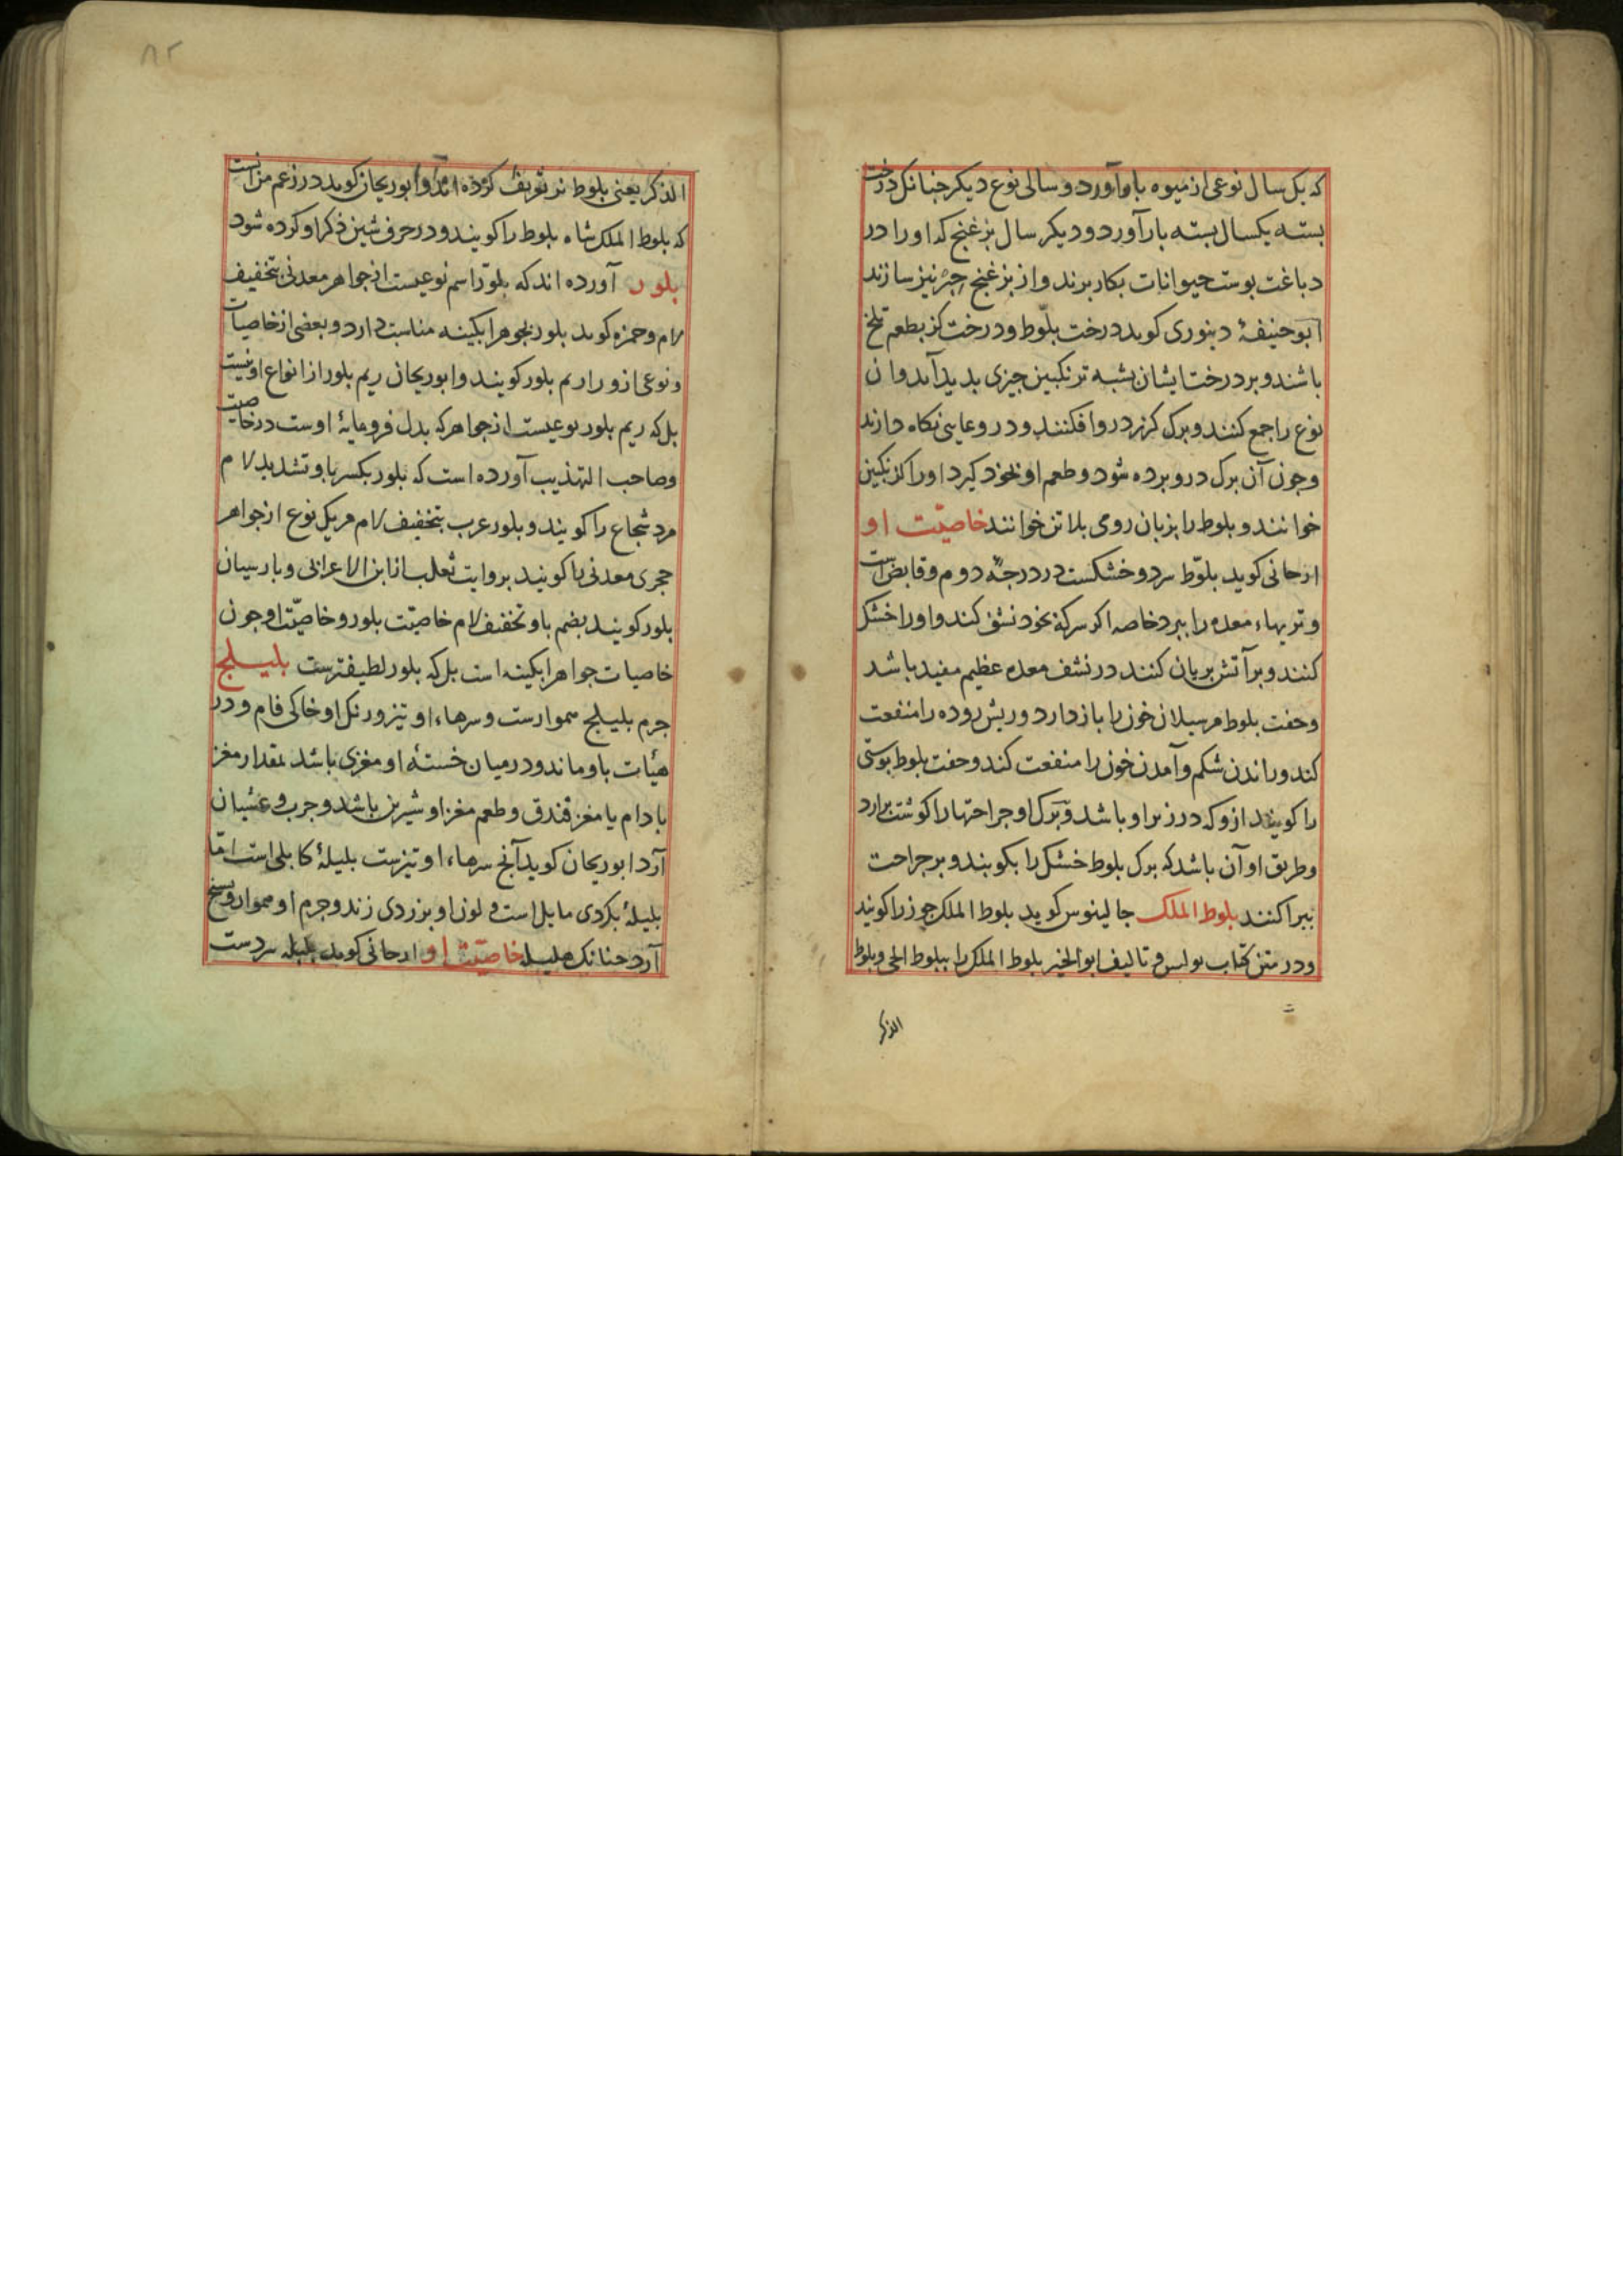 که یک سال نوعی از میوه بار آورد و سالی نوع دیکر جنانک درخت
بسته یکسال بسته بار آورد و دیکر سال بزغنج که او را در
دباغت بوست حیوانات بکار برند و از بزغنج حبر نیز سازند
ابوحنیفۀ دینوری کوید درخت بلوط و درخت کز بطعم تلخ
باشند و بر درخت ایشان بشبه ترنکبین جیزی بدید آید و ان
نوع را جمع کنند و برک کرز درو افکنند و در وعایی نکاه دارند
وجون آن برک درو برده شود و طعم او بخود کیرد او را کزنکبین
خوانند و بلوط را بزبان رومی بلاتن خوانند خاصیّت او
ارجانی کوید بلوّط سرد و خشکست در درجۀ دوم و قابض است
و تریهاء معده را ببرد خاصه اکر سرکه بخود نشف کند و او را خشک
کنند و بر آتش بریان کنند در نشف معده عظیم مفید باشد
وجفت بلوط مر سیلان خون را باز دارد و ریش روده را منفعت
کند و راندن شکم و آمدن خون را منفعت کند و جفت بلوط بوستی
را کویند ازو که در زیر او باشد و برک او جراحتها را کوشت برارد
و طریق او آن باشد که برک بلوط خشک را بکوبند و بر جراحت
ببراکنند بلوط الملک جالینوس کوید بلوط الملک جوز را کویند
ودر متن کتاب بولس و تالیف ابو الخیر بلوط الملک را ببلوط الحی و بلوط
الذکر
۸۲
الذکر یعنی بلوط نر تعریف کرده اند و ابوریحان کوید در زعم من آنست
که بلوط الملک شاه بلوط را کویند و در حرف شین ذکر او کرده شود
بلور آورده اند که بلوّر اسم نوعیست از جواهر معدنی بتخفیف
لام و حمزه کوید بلور بجوهر ابکینه مناسبت دارد و بعضی از خاصیات
و نوعی ازو را ریم بلور کویند و ابوریحان ریم بلور از انواع او نیست
بل که ریم بلور نوعیست از جواهر که بدل فرومایۀ اوست در خاصیت
وصاحب التهذیب آورده است که بلور بکسر با و تشدید لام
مرد شجاع را کویند و بلور عرب بتخفیف لام مر یک نوع از جواهر
حجری معدنی را کویند بروایت ثعلب از ابن الاعرابی و بارسیان
بلور کویند بضم با و تخفیف لام خاصیّت بلور و خاصیّت او جون
خاصیات جواهر ابکینه است بل که بلور لطیفترست بلیلج
جرم بلیلج هموارست و سرهاء او تیز و رنک او خاکی فام و در
هیأت باو ماند و در میان خستۀ او مغزی باشد بمقدار مغز
بادام یا مغز فندق و طعم مغز او شیرین باشد و جرب و غشیان
آرد ابوریحان کوید آنج سرهاء او تیزست بلیلۀ کابلی است امّا
بلیلۀ بکردی مایل است و لون او بزردی زند و جرم او هموار و
آرد جنانک هلیله خاصیّت او ارجانی کوید بلیله سردست